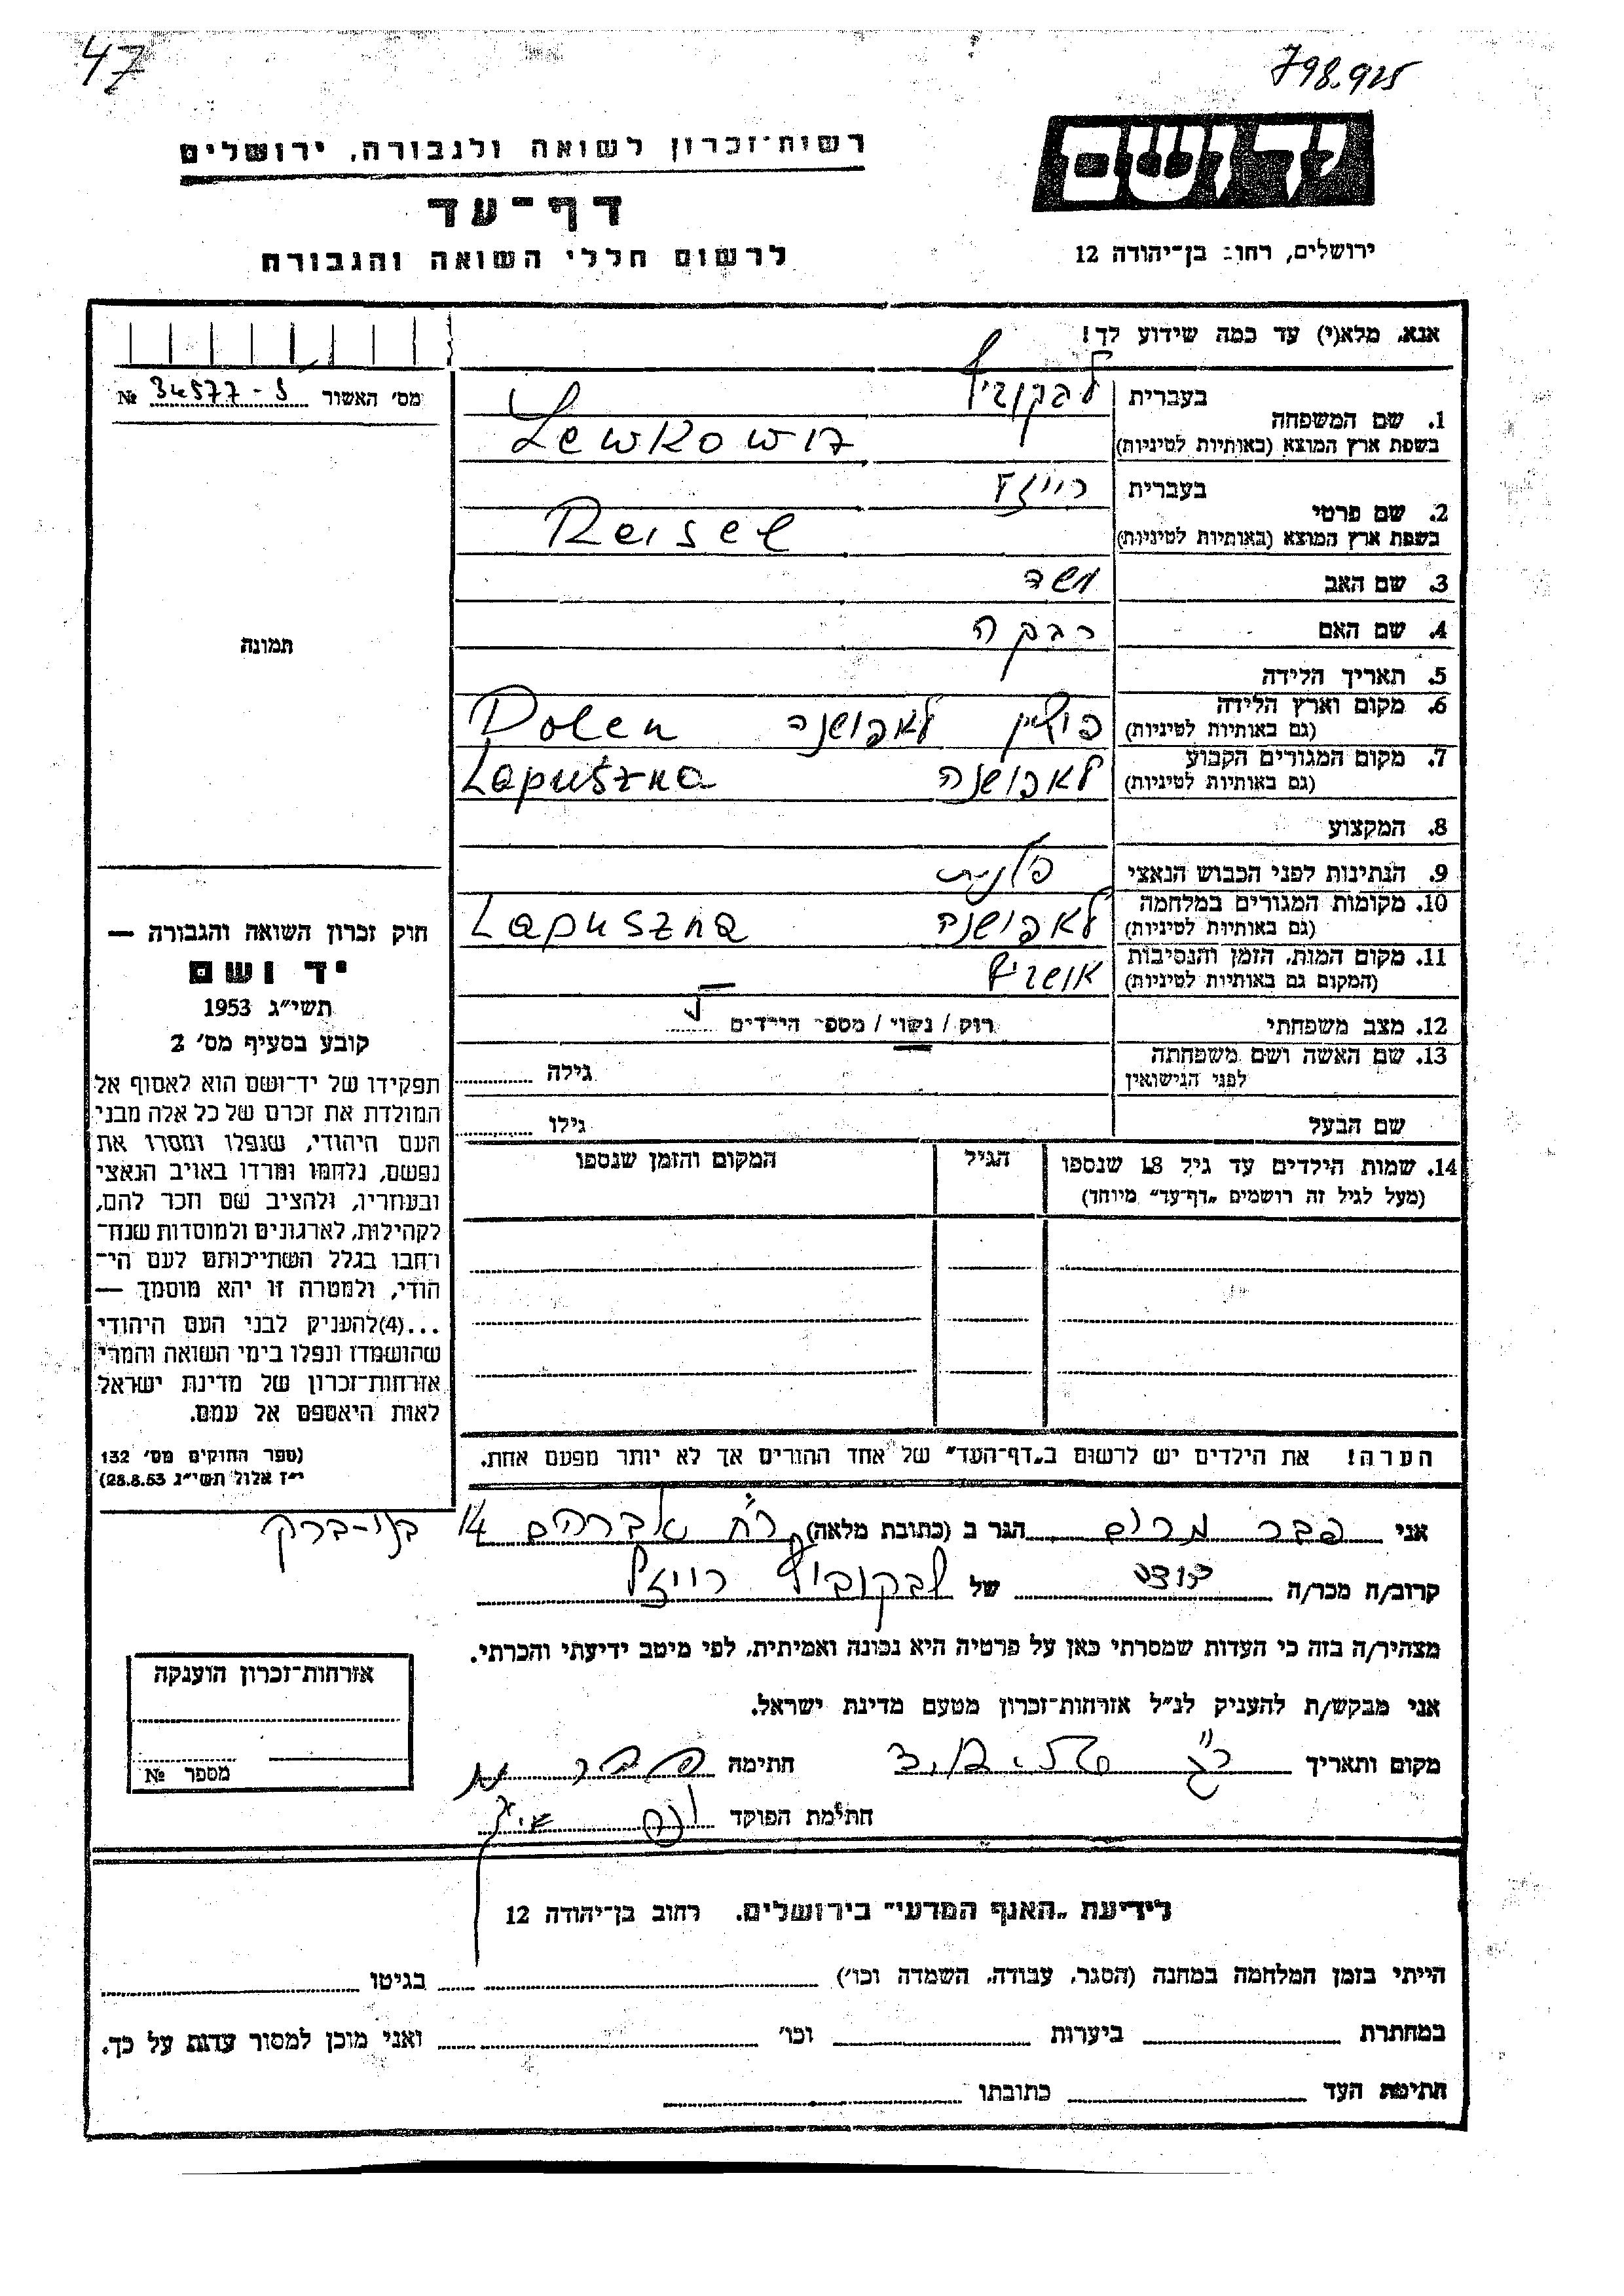 47
798.925
יד ושם
ירושלים, רחוב בן־יהודה 12
רשות־זכרון לשואה ולגבורה, ירושלים
דף־עד
לרשום חללי השואה והגבורה
אנא, מלא(י) עד כמה שידוע לך!
מס׳ האשור 34577-5 №
1. שם המשפחה
בעברית לבקוביץ
בשפת ארץ המוצא (באותיות לטיניות) Lewkowiz
2. שם פרטי
בעברית רייזל
בשפת ארץ המוצא (באותיות לטיניות) Reisel
3. שם האב משה
4. שם האם רבקה
5. תאריך הלידה
6. מקום וארץ הלידה פולין לאפושנה Polen
(גם באותיות לטיניות)
7. מקום המגורים הקבוע לאפושנה Lapuszna
(גם באותיות לטיניות)
8. המקצוע
9. הנתינות לפני הכבוש הנאצי פולנית
10. מקומות המגורים במלחמה לאפושנה Lapuszna
(גם באותיות לטיניות)
11. מקום המות, הזמן והנסיבות אושביץ
(המקום גם באותיות לטיניות)
12. מצב משפחתי רוק / נשוי / מספר הילדים
13. שם האשה ושם משפחתה גילה
לפני הנישואין
שם הבעל גילו
14. שמות הילדים עד גיל 18 שנספו הגיל המקום והזמן שנספו
(מעל לגיל זה רושמים „דף־עד״ מיוחד)
הערה! את הילדים יש לרשום ב„דף־העד״ של אחד ההורים אך לא יותר מפעם אחת.
תמונה
חוק זכרון השואה והגבורה —
יד ושם
תשי״ג 1953
קובע בסעיף מס׳ 2
תפקידו של יד־ושם הוא לאסוף אל
המולדת את זכרם של כל אלה מבני
העם היהודי, שנפלו ומסרו את
נפשם, נלחמו ומרדו באויב הנאצי
ובעוזריו, ולהציב שם וזכר להם,
לקהילות, לארגונים ולמוסדות שנח־
רחבו בגלל השתייכותם לעם הי־
הודי, ולמטרה זו יהא מוסמך —
...(4)להעניק לבני העם היהודי
שהושמדו ונפלו בימי השואה והמרי
אזרחות־זכרון של מדינת ישראל
לאות היאספם אל עמם.
(ספר החוקים מס׳ 132
י״ז אלול תשי״ג 28.8.53)
אני פבר מרים הגר ב (כתובת מלאה) רח׳ אברהם 14 בני-ברק
קרוב/ה מכר/ה דודה של לבקוביץ רייזל
מצהיר/ה בזה כי העדות שמסרתי כאן על פרטיה היא נכונה ואמיתית, לפי מיטב ידיעתי והכרתי.
אני מבקש/ת להעניק לנ״ל אזרחות־זכרון מטעם מדינת ישראל.
מקום ותאריך חתימה פבר מ
חתימת הפוקד
אזרחות־זכרון הוענקה
מספר №
לידיעת „האגף המדעי״ בירושלים. רחוב בן־יהודה 12
הייתי בזמן המלחמה במחנה (הסגר, עבודה, השמדה וכו׳) בגיטו
במחתרת ביערות וכו׳ ואני מוכן למסור עדות על כך.
חתימת העד כתובתו